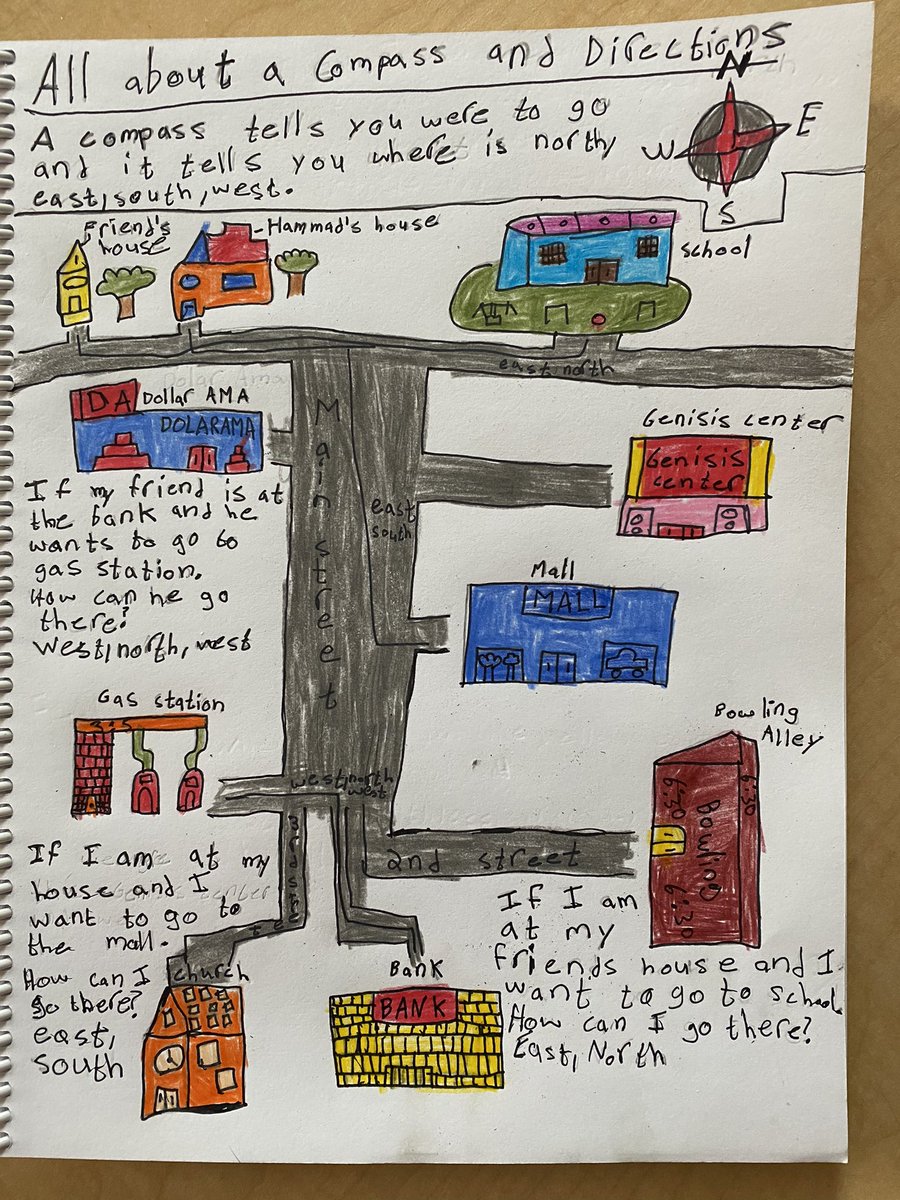 All about a Compass and Directions
A compass tells you were to go
and it tells you where is north
east, south, west.
N
E
W
S
Friend's
house
Hammad's house
school
east north
DA Dollar AMA
DOLARAMA
Main street
Genisis center
Genisis
center
If my friend is at
the bank and he
wants to go to
gas station.
How can he go
there?
West, north, west
east
south
Mall
MALL
Gas station
GAS
Bowling
Alley
6:30
6:30
Bowling
6:30
west, north
west
2nd street
If I am at my
house and I
want to go to
the mall.
How can I
go there?
east,
south
church
Bank
BANK
If I am
at my
friends house and I
want to go to school
How can I go there?
East, North